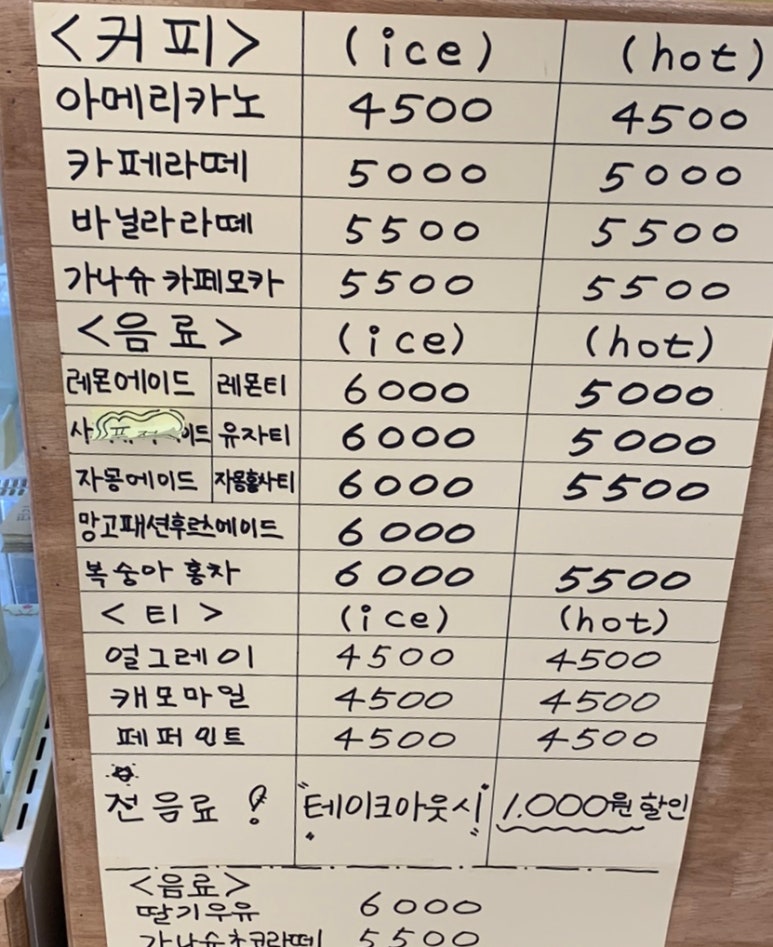 <커피> (ice) (hot)
아메리카노 4500 4500
카페라떼 5000 5000
바닐라라떼 5500 5500
가나슈 카페모카 5500 5500
<음료> (ice) (hot)
레몬에이드 레몬티 6000 5000
유자티 6000 5000
자몽에이드 자몽홍차티 6000 5500
망고패션후르츠에이드 6000
복숭아 홍차 6000 5500
<티> (ice) (hot)
얼그레이 4500 4500
캐모마일 4500 4500
페퍼민트 4500 4500
전음료! "테이크아웃시" 1.000원 할인
<음료>
딸기우유 6000
가나슈초코라떼 5500